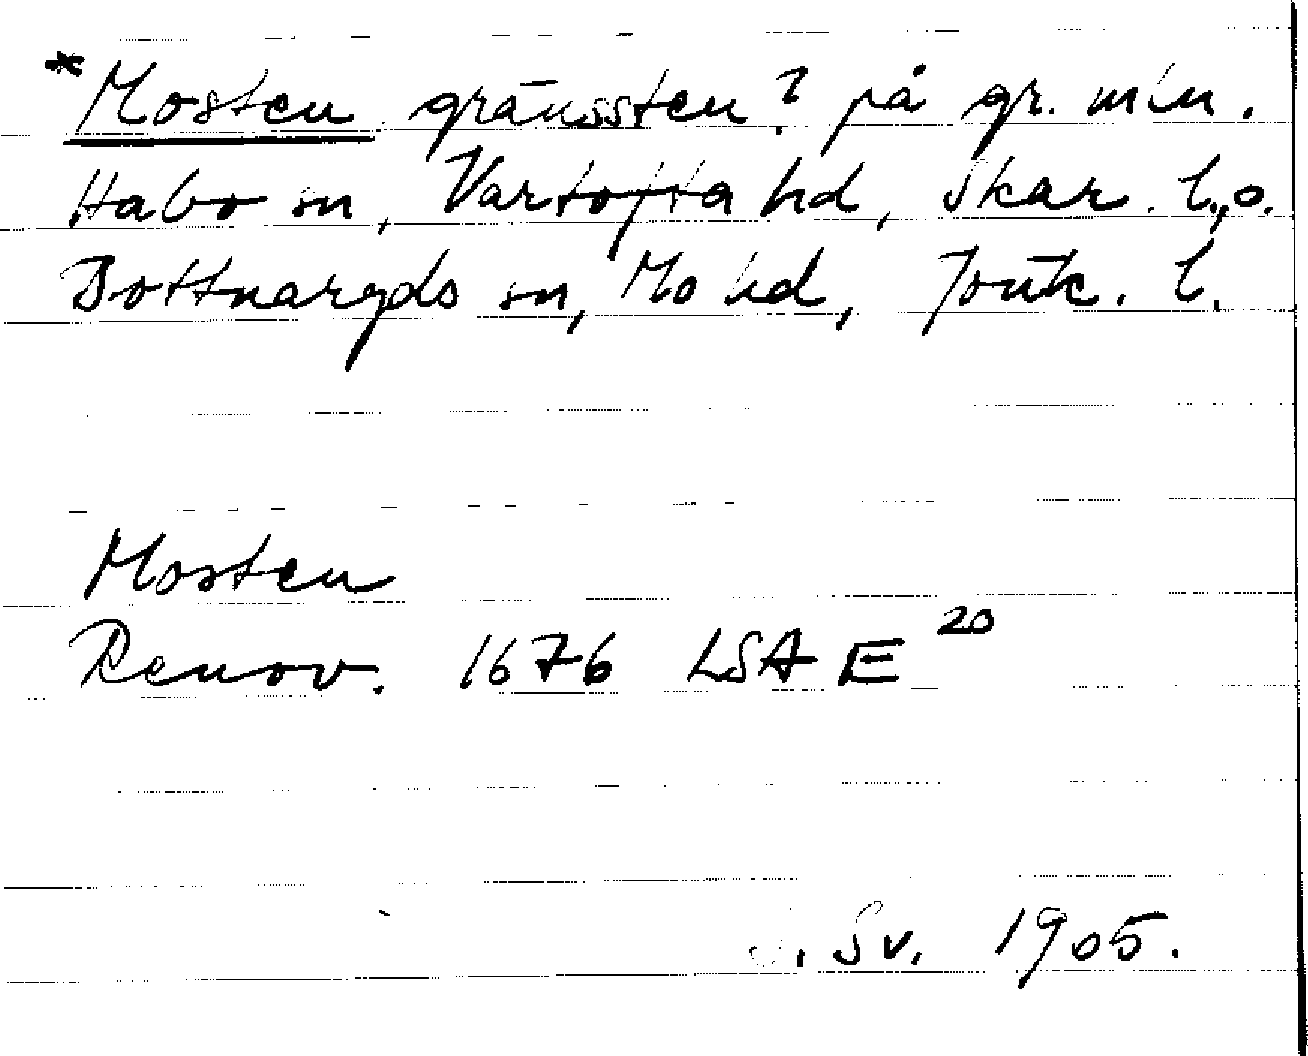 *Mosten gränssten? på gr. mln.
Habo sn, Vartofta hd, Skar. l., o.
Bottnaryds sn, Mo hd, Jönk. l.
Mosten
Renov. 1676 LSA E 20
. Sv. 1905.